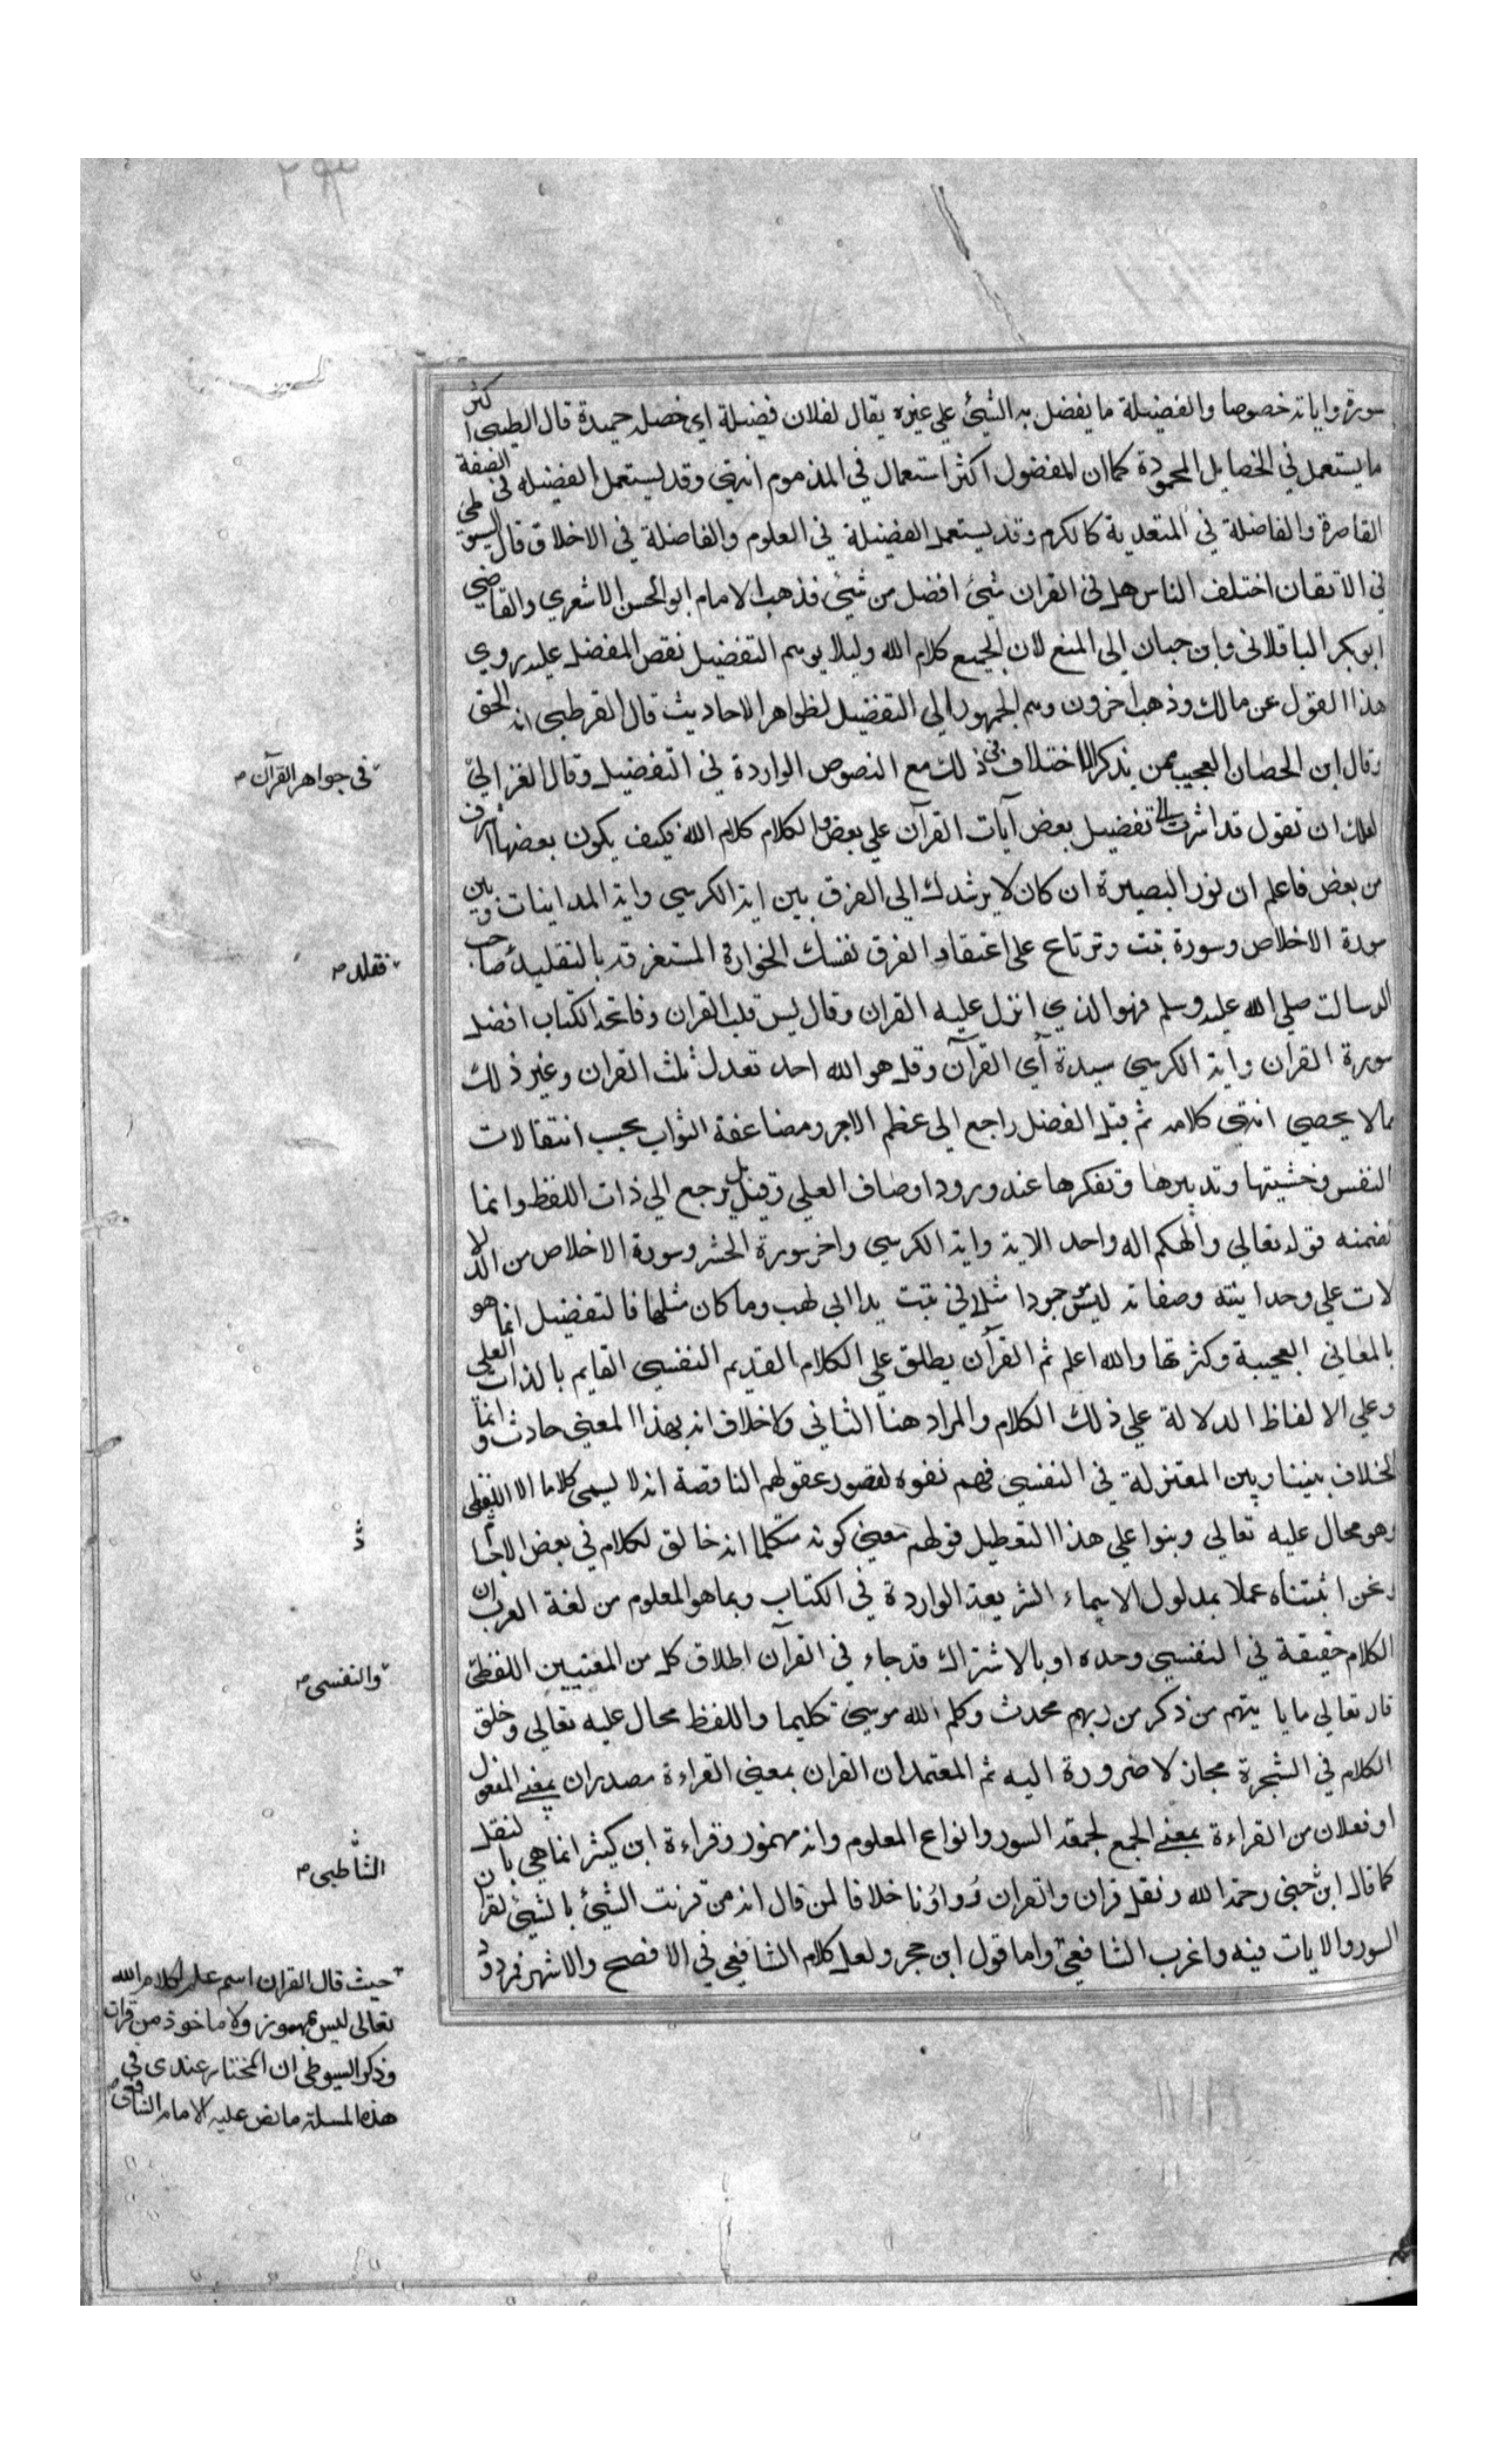 سورة واياته خصوصا والفضيلة ما يفضل به الشيئ علي غيره يقال لفلان فضيلة اي خصلة حميدة قال الطيبي اكثر
ما يستعمل في الخصايل المحمودة كما ان المفضول اكثر استعمال في المذموم انتهي وقد يستعمل الفضيلة في الصفة
القاصرة والفاضلة في المتعدية كالكرم وقد يستعمل الفضيلة في العلوم والفاضلة في الاخلاق قال السيوطي
في الاتقان اختلف الناس هل في القران شيئ افضل من شيئ فذهب الامام ابو الحسن الاشعري والقاضي
ابو بكر الباقلاني وابن حبان الي المنع لان الجميع كلام الله وليلا يوهم التفضيل نقص المفضل عليه روي
هذا القول عن مالك وذهب اخرون وهم الجمهور الي التفضيل لظواهر الاحاديث قال القرطبي انه الحق
وقال ابن الحصان العجيب ممن يذكر الاختلاف في ذلك مع النصوص الواردة في التفضيل وقال الغزالي
في جواهر القرآن
لعلك ان تقول قد اشرت الي تفضيل بعض آيات القرآن علي بعض والكلام كلام الله فكيف يكون بعضها اشرف
من بعض فاعلم ان نور البصيرة ان كان لا يرشدك الي الفرق بين اية الكرسي واية المداينات وبين
سورة الاخلاص وسورة تبت وترتاع علي اعتقاد الفرق نفسك الخوارة المستغرقة بالتقليد صاحب
فقلد
الرسالت صلي الله عليه وسلم فهو الذي انزل عليه القران وقال يس قلب القران وفاتحة الكتاب افضل
سورة القران واية الكرسي سيدة آي القرآن وقل هو الله احد تعدل ثلث القران وغير ذلك
مالا يحصي انتهي كلامه ثم قيل الفضل راجع الي عظم الاجر ومضاعفة الثواب بحسب انتقالات
النفس وخشيتها وتدبيرها وتفكرها عند ورود اوصاف العلي وقيل بل يرجع الي ذات اللفظ وانما
تضمنه قوله تعالي والهكم اله واحد الاية واية الكرسي واخر سورة الحشر وسورة الاخلاص من الدلا
لات علي وحدانيته وصفاته ليس موجودا مثلا في تبت يدا ابي لهب وما كان مثلها فالتفضيل انما هو
بالمعاني العجيبة وكثرتها والله اعلم ثم القرآن يطلق علي الكلام القديم النفسي القايم بالذات العلي
وعلي الالفاظ الدلالة علي ذلك الكلام والمراد هنا الثاني ولا خلاف انه بهذا المعني حادث وانما
الخلاف بيننا وبين المعتزلة في النفسي فهم نفوه لقصور عقولهم الناقصة انه لا يسمي كلاما الا اللفظي
وهو محال عليه تعالي وبنوا علي هذا التعطيل قولهم معني كونه متكلما انه خالق لكلام في بعض الاجسا
ونحن اثبتناه عملا بمدلول الاسماء الشريعة الواردة في الكتاب وبما هو المعلوم من لغة العرب ان
الكلام حقيقة في النفسي وحده او بالاشتراك قد جاء في القرآن اطلاق كل من المعنيين اللفظي
والنفسي
قال تعالي ما ياتيهم من ذكر من ربهم محدث وكلم الله موسي تكليما واللفظ محال عليه تعالي وخلق
الكلام في الشجرة مجاز لا ضرورة اليه ثم المعتمد ان القران بمعني القراءة مصدران بمعني المفعول
او فعلان من القراءة بمعني الجمع لجمعه السور وانواع المعلوم وانه مهموز وقراءة ابن كثير انما هي بالنقل
كما قال ابن جني رحمه الله ونقل قران والقران دواؤنا خلافا لمن قال انه من قرنت الشيئ بالشيئ لقران
الشاطبي
السور والايات فيه واغرب الشافعي واما قول ابن حجر ولعل كلام الشافعي في الافصح والاشهر فمردود
حيث قال القران اسم علم لكلام الله
تعالي ليس بمهموز ولا ماخوذ من قرات
وذكر السيوطي ان المختار عندي في
هذه المسلة ما نص عليه الامام الشافعي